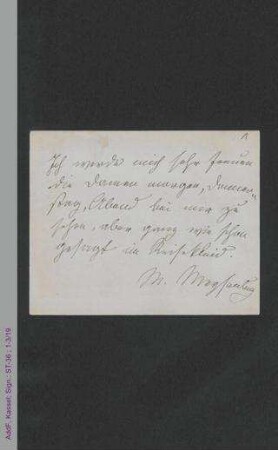 1
Ich werde mich sehr freuen
die Damen morgen, Donner-
stag, Abend bei mir zu
sehen, aber ganz wie schon
gesagt im Reisekleid.
M. Meysenbug
AddF, Kassel; Sign.: ST-36 ; 1-3/19